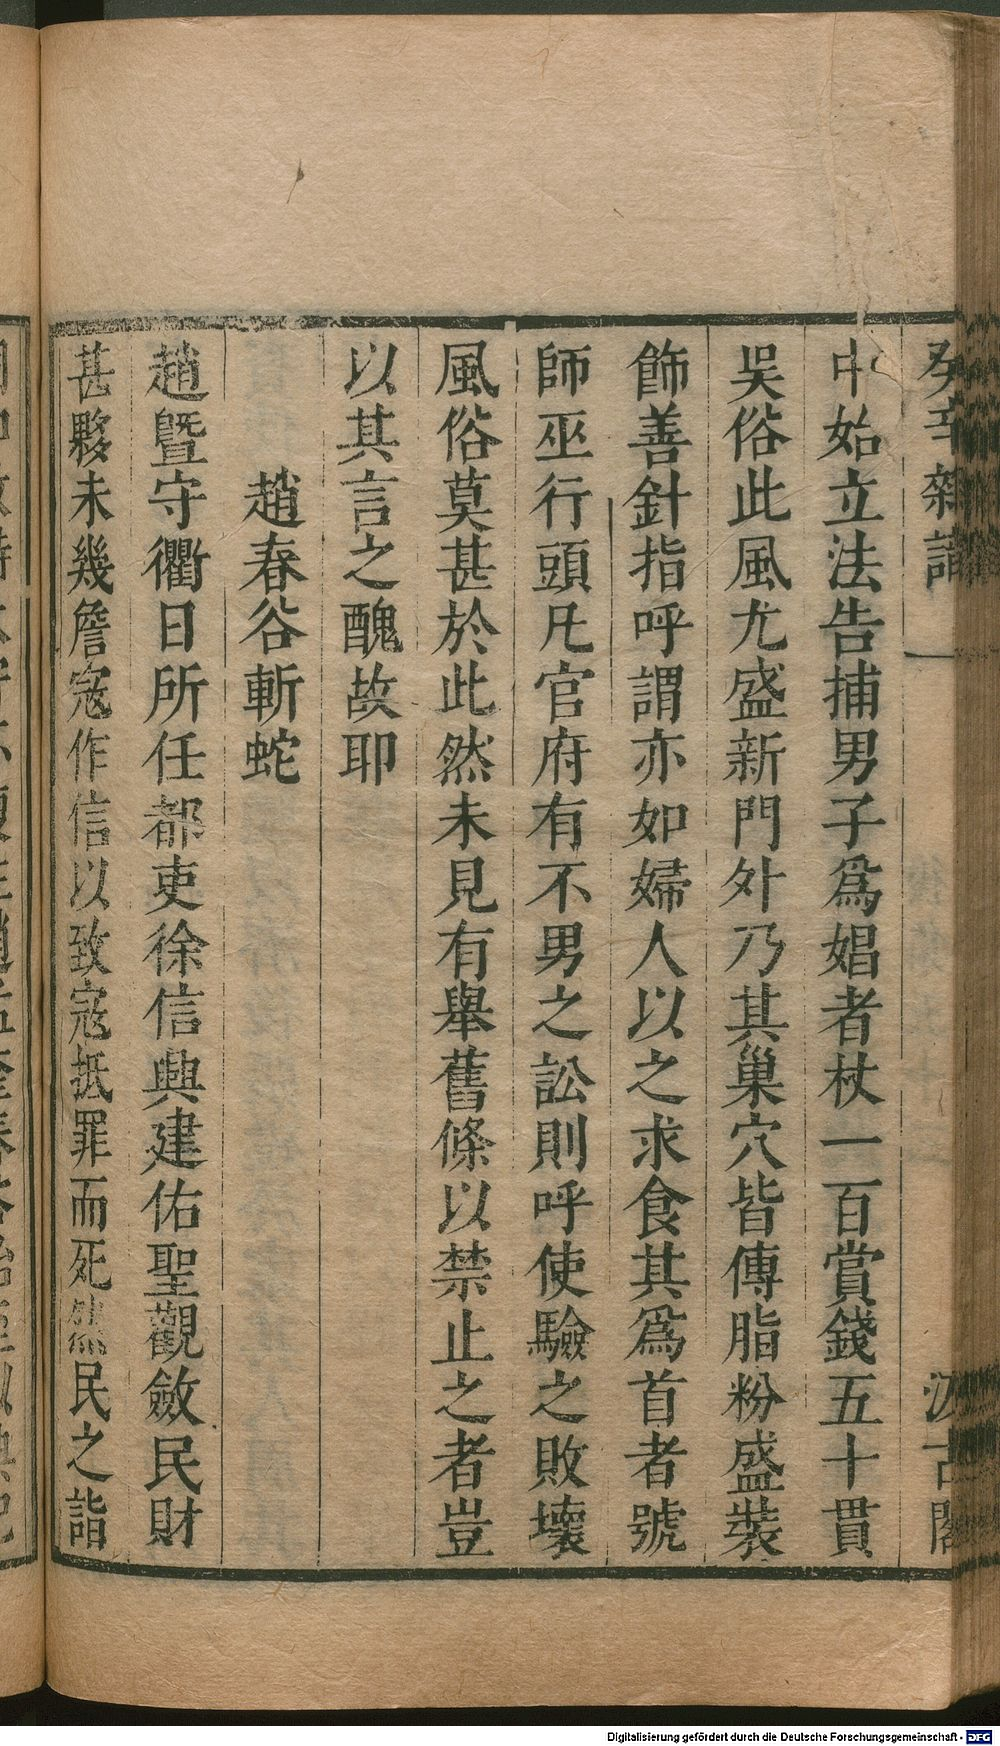 癸辛雜識 一 汲古閣
中始立法告捕男子爲娼者杖一百賞錢五十貫
吳俗此風尤盛新門外乃其巢穴皆傅脂粉盛裝
飾善針指呼謂亦如婦人以之求食其爲首者號
師巫行頭凡官府有不男之訟則呼使驗之敗壞
風俗莫甚於此然未見有舉舊條以禁止之者豈
以其言之醜故耶
趙春谷斬蛇
趙曁守衢日所任都吏徐信興建佑聖觀斂民財
甚夥未幾詹寇作信以致寇抵罪而死然民之詣
Digitalisierung gefördert durch die Deutsche Forschungsgemeinschaft - DFG